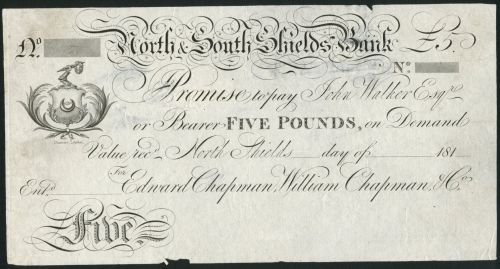 No North & South Shields Bank £5
No.
Promise to pay John Walker Esqre.
or Bearer FIVE POUNDS, on Demand
Value recd. North Shields day of 181
For Edward Chapman, William Chapman, & Co.
Entd.
Five